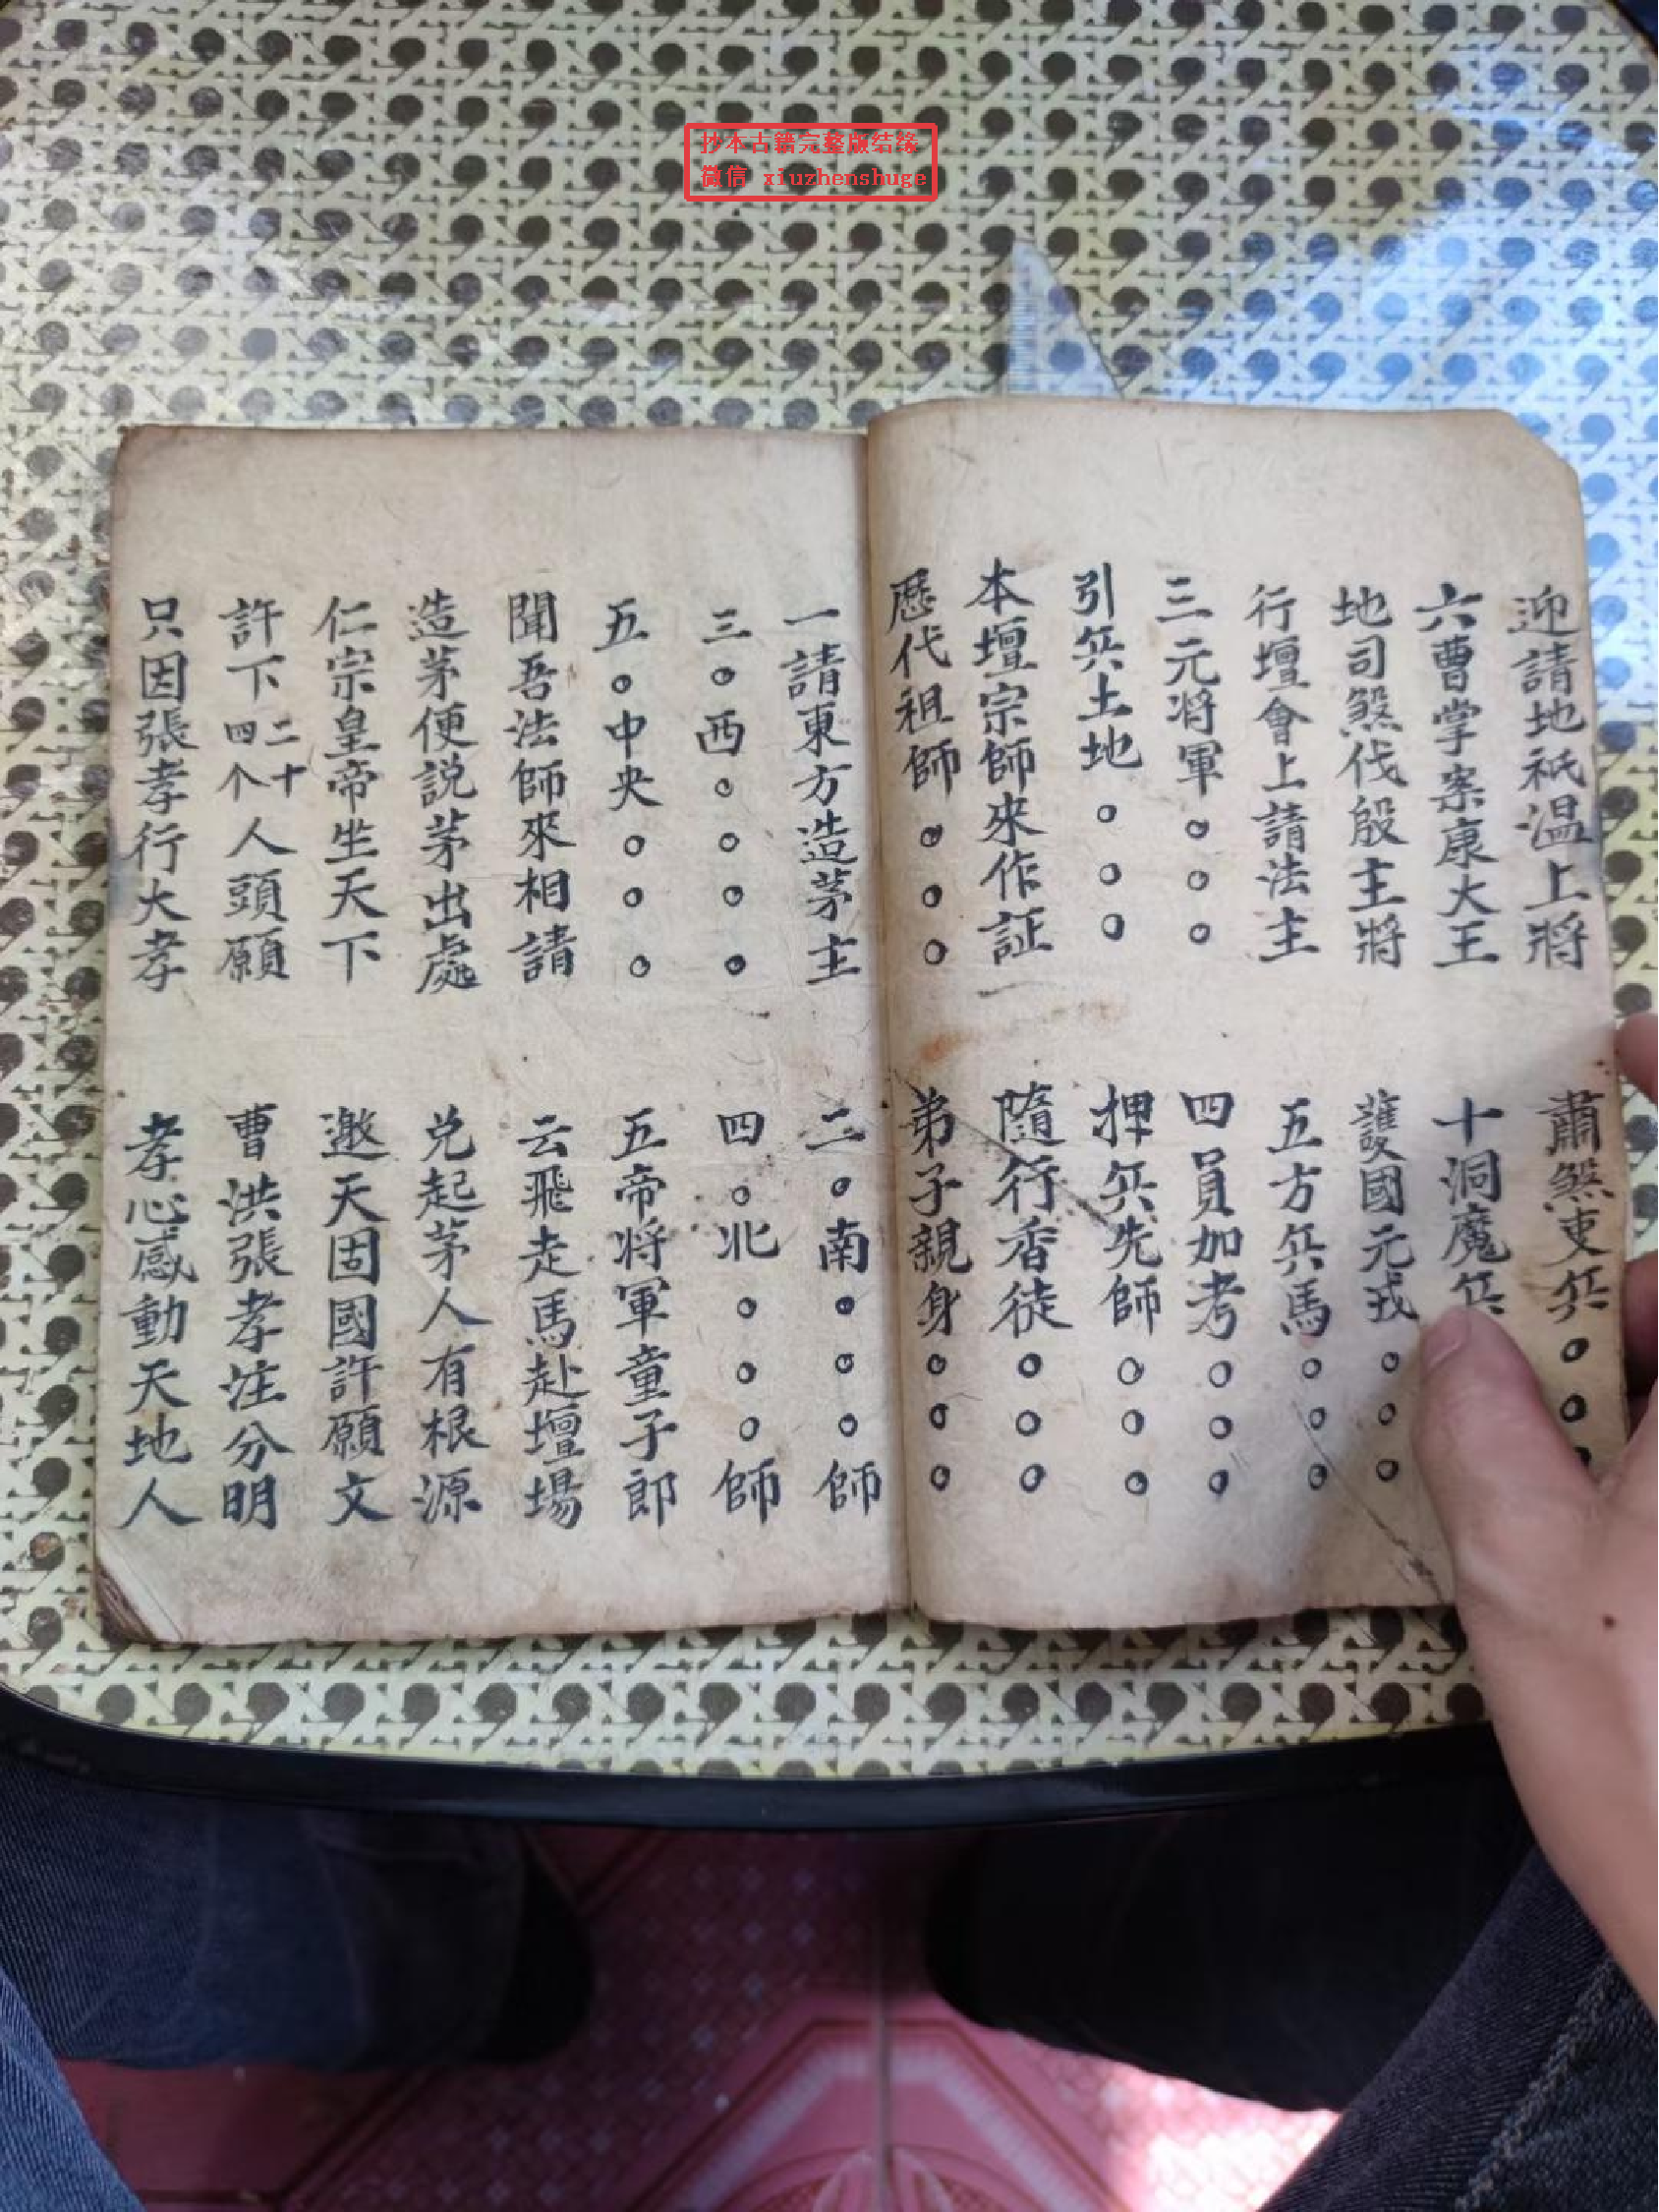 抄本古籍完整版结缘
微信 xiuzhenshuge
迎請地祇温上將 蕭煞吏兵○○○
六曹掌案康大王 十洞魔兵
地司煞伐殷主將 護國元戎○○○
行壇會上請法主 五方兵馬○○○
三元将軍○○○ 四員加考○○○
引兵土地○○○ 押兵先師○○○
本壇宗師來作証 隨行香徒○○○
歷代祖師○○○ 弟子親身○○○
一請東方造茅主 二○南○○○師
三○西○○○○ 四○北○○○師
五○中央○○○ 五帝将軍童子郎
聞吾法師來相請 云飛走馬赴壇場
造茅便説茅出處 兑起茅人有根源
仁宗皇帝坐天下 邀天固國許願文
許下二十四个人頭願 曹洪張孝注分明
只因張孝行大孝 孝心感動天地人